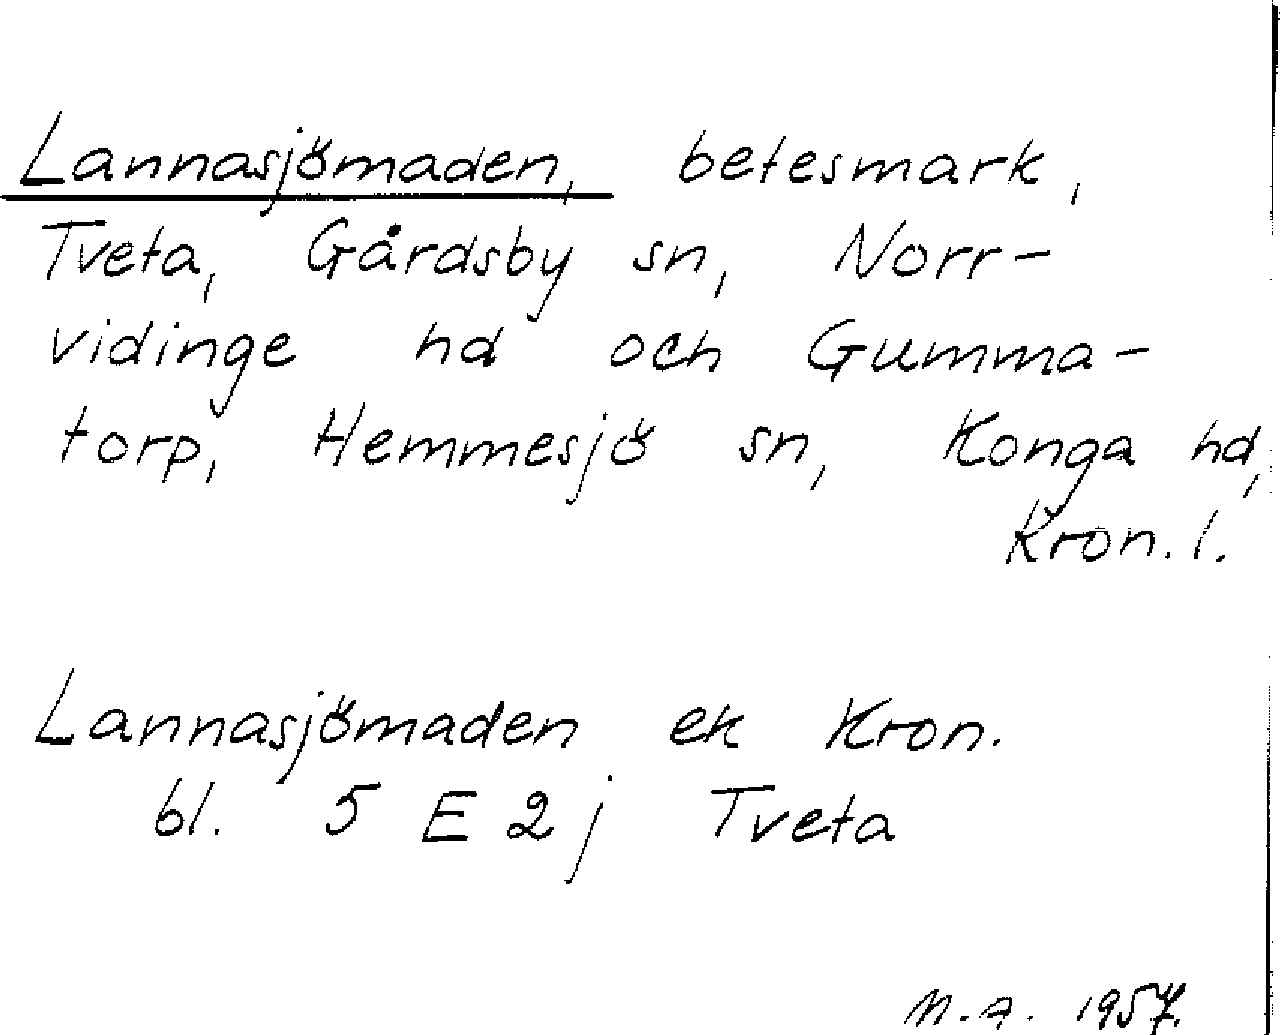 Lannasjömaden, betesmark,
Tveta, Gårdsby sn, Norr-
vidinge hd och Gumma-
torp, Hemmesjö sn, Konga hd,
Kron. l.
Lannasjömaden ek Kron.
bl. 5 E 2j Tveta
M.A. 1957.